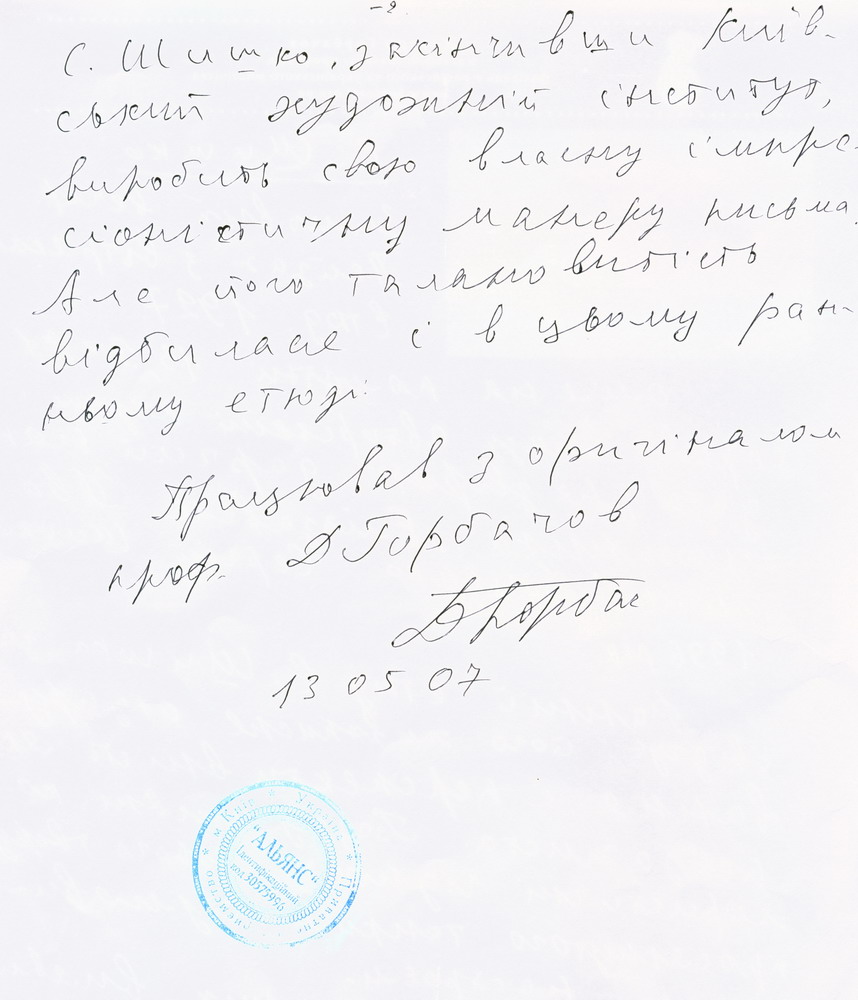 -2
С. Шишко, закінчивши Київ-
ський художній інститут,
виробить свою власну імпре-
сіоністичну манеру письма.
Але його талановитість
відбилася і в цьому ран-
ньому етюді.
Працював з оригіналом
проф. Д Горбачов
ДГорбач
13 05 07
* м Київ * Україна * Приватне
"АЛЬЯНС"
Ідентифікаційний
код 30575996